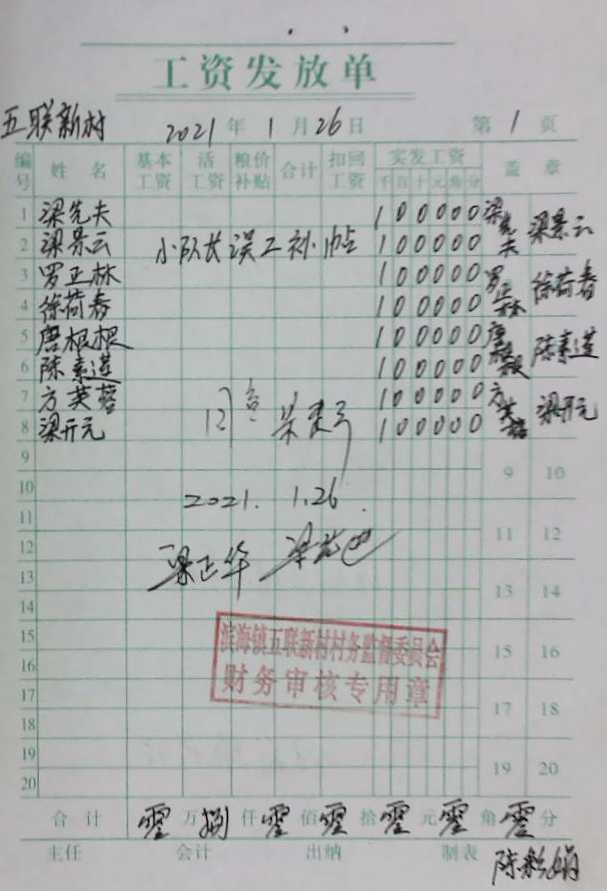 工资发放单
五联新村
2021年1月26日 第1页
编号 姓名 基本工资 活工资 粮价补贴 合计 扣回工资 实发工资 盖章
千百十元角分
1 梁先夫 100000 梁先夫
2 梁景云 小队长误工补帖 100000 梁景云
3 罗正林 100000 罗正林
4 徐荷春 100000 徐荷春
5 唐根根 100000 唐根根
6 陈素莲 100000 陈素莲
7 方芙蓉 100000 方芙蓉
8 梁开元 100000 梁开元
9 9 10
10
2021.1.26
11 11 12
12
梁正华
13 13 14
14
15 15 16
滨海镇五联新村村务监督委员会
16
财务审核专用章
17 17 18
18
19 19 20
20
合计 零万捌仟零佰零拾零元零角零分
主任 会计 出纳 制表